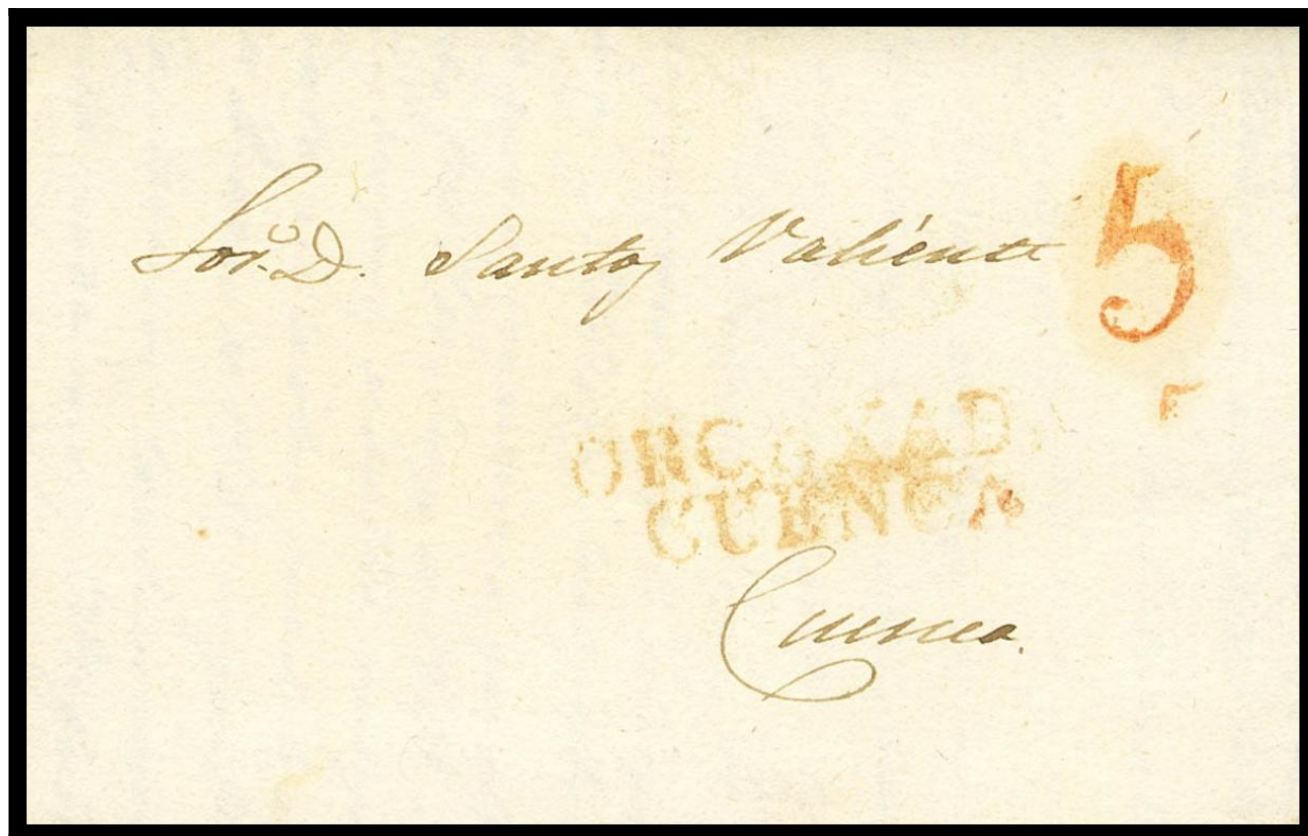 Sor. D. Santos Valiente
5
CUENCA
Cuenca.